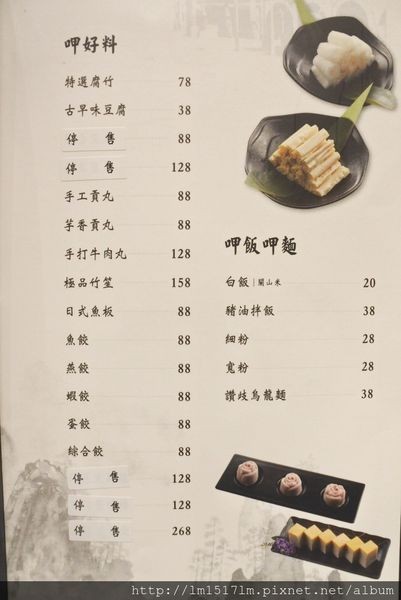 呷好料
特選腐竹 78
古早味豆腐 38
停售 88
停售 128
手工貢丸 88
芋香貢丸 88
手打牛肉丸 128
極品竹笙 158
日式魚板 88
魚餃 88
燕餃 88
蝦餃 88
蛋餃 88
綜合餃 88
停售 128
停售 128
停售 268
呷飯呷麵
白飯|關山米 20
豬油拌飯 38
細粉 28
寬粉 28
讚岐烏龍麵 38
http://lm1517lm.pixnet.net/album